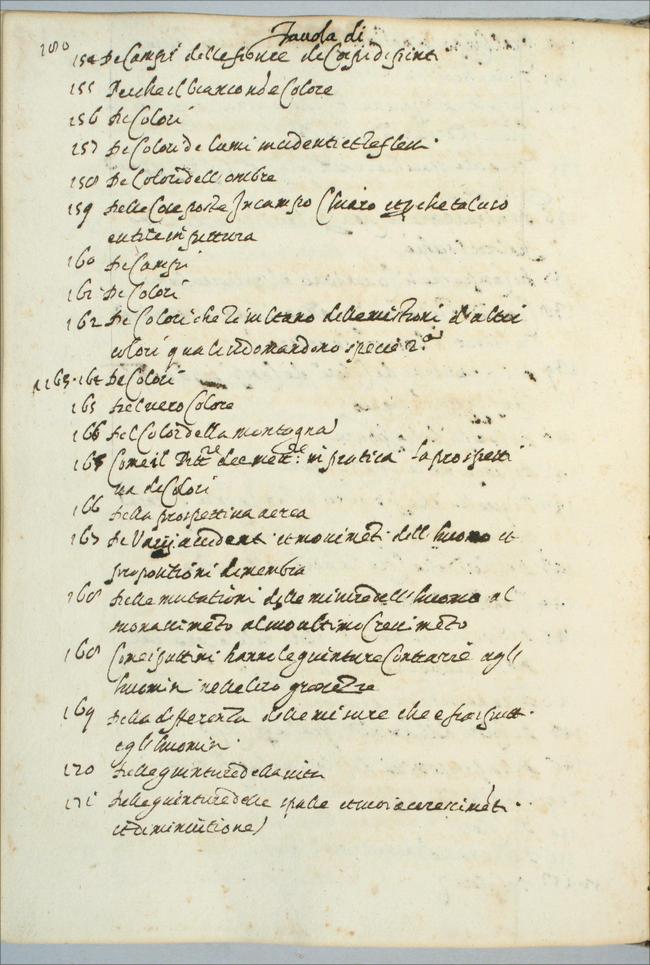 Tavola di
154 De Campi delle figure de Corpi dipinti
155 Perche il bianco nō e Colore
156 De Colori
157 De Colori de lumi incidenti et reflessi
158 De Colori dell ombre
159 Delle Cose poste In campo Chiaro et che tal uso
e utile in pittura
160 De Campi
161 De Colori
162 De Colori che risultano delle mistioni d'altri
colori quali si domandono specie 2.a
163. 164 De Colori
165 Del vero Colore
166 Del Color della montagna
Come il Pitt.re dee mett.re in pratica la prospetti
va de Colori
166 Della prospettiva aerea
167 De Varij accidenti et movimēti dell huomo et
proportioni di membra
168 Delle mutationi delle misure dell huomo al
nascimēto al ultimo Crescimēto
168 Come i puttini hanno le gunture Contrarie agli
huomini nelle loro grossezze
169 Della differenza delle misure che e fra i putti
e gli huomini
170 Delle gunture della vita
171 Delle gunture delle spalle et suoi accrescimēti
et diminuitione